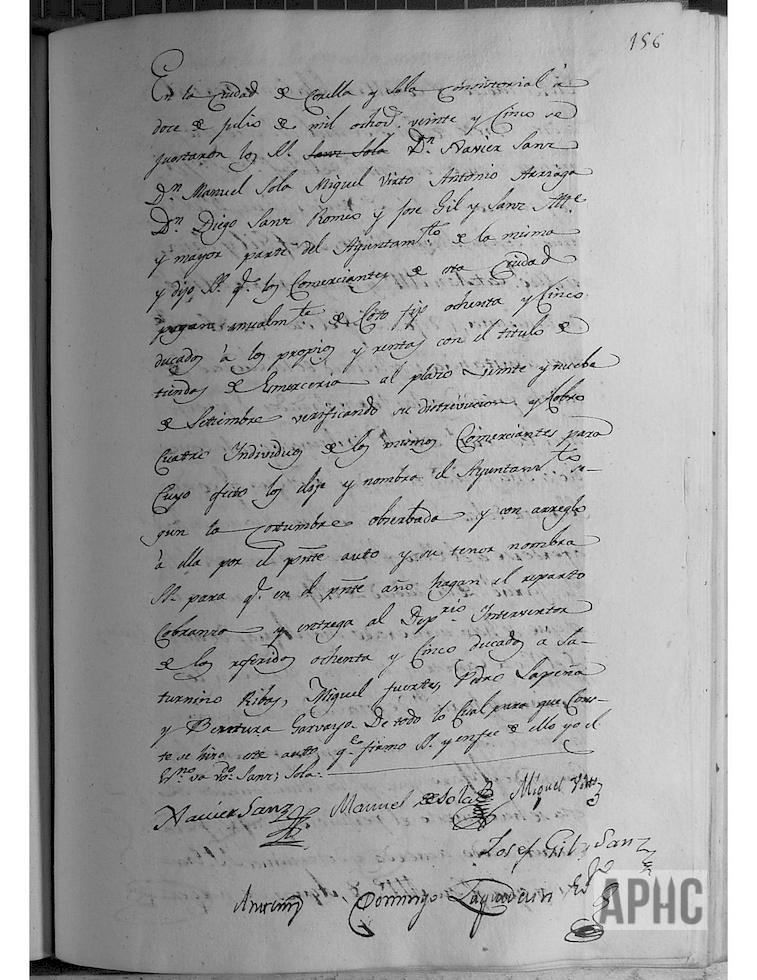 156
En la Ciudad de Corella y Sala Consistorial à
doce de julio de mil ochod. veinte y Cinco se
juntaron los SS. Sanz Sola Dn. Xavier Sanz
Dn. Manuel Sola Miguel Virto Antonio Arriaga
Dn. Diego Sanz Romeo y Jose Gil y Sanz
y mayor parte del Ayuntamto. de la misma
y dijo SS. q. los Comerciantes de dta Ciudad
pagan anualmte. de Coto fijo ochenta y Cinco
ducados à los propios y rentas con el titulo de
tiendas de Esmerceria al plazo veinte y nueba
de Setiembre verificando su distrivucion y Cobro
Cuatro Individuos de los mismos Comerciantes para
Cuyo efecto los elije y nombra el Ayuntamto. se-
gun la Costumbre obserbada y con arreglo
à ella por el pnte auto y su tenor nombra
SS. para q. en el pnte año hagan el reparto
Cobranza y entrega al Deprio. Interventor
de los referidos ochenta y Cinco ducados a Sa-
turnino Ribas, Miguel fuertes, Pedro Lapeña
y Bentura Garvayo. De todo lo Cual para que Cons-
te se hizo este auto q. firmo SS. y en fee de ello yo el
Esno. va rdo. Sanz; Sola.
Xavier Sanz Manuel de Sola Miguel Virto
Josef Gil y Sanz
Antemi Domingo
APHC